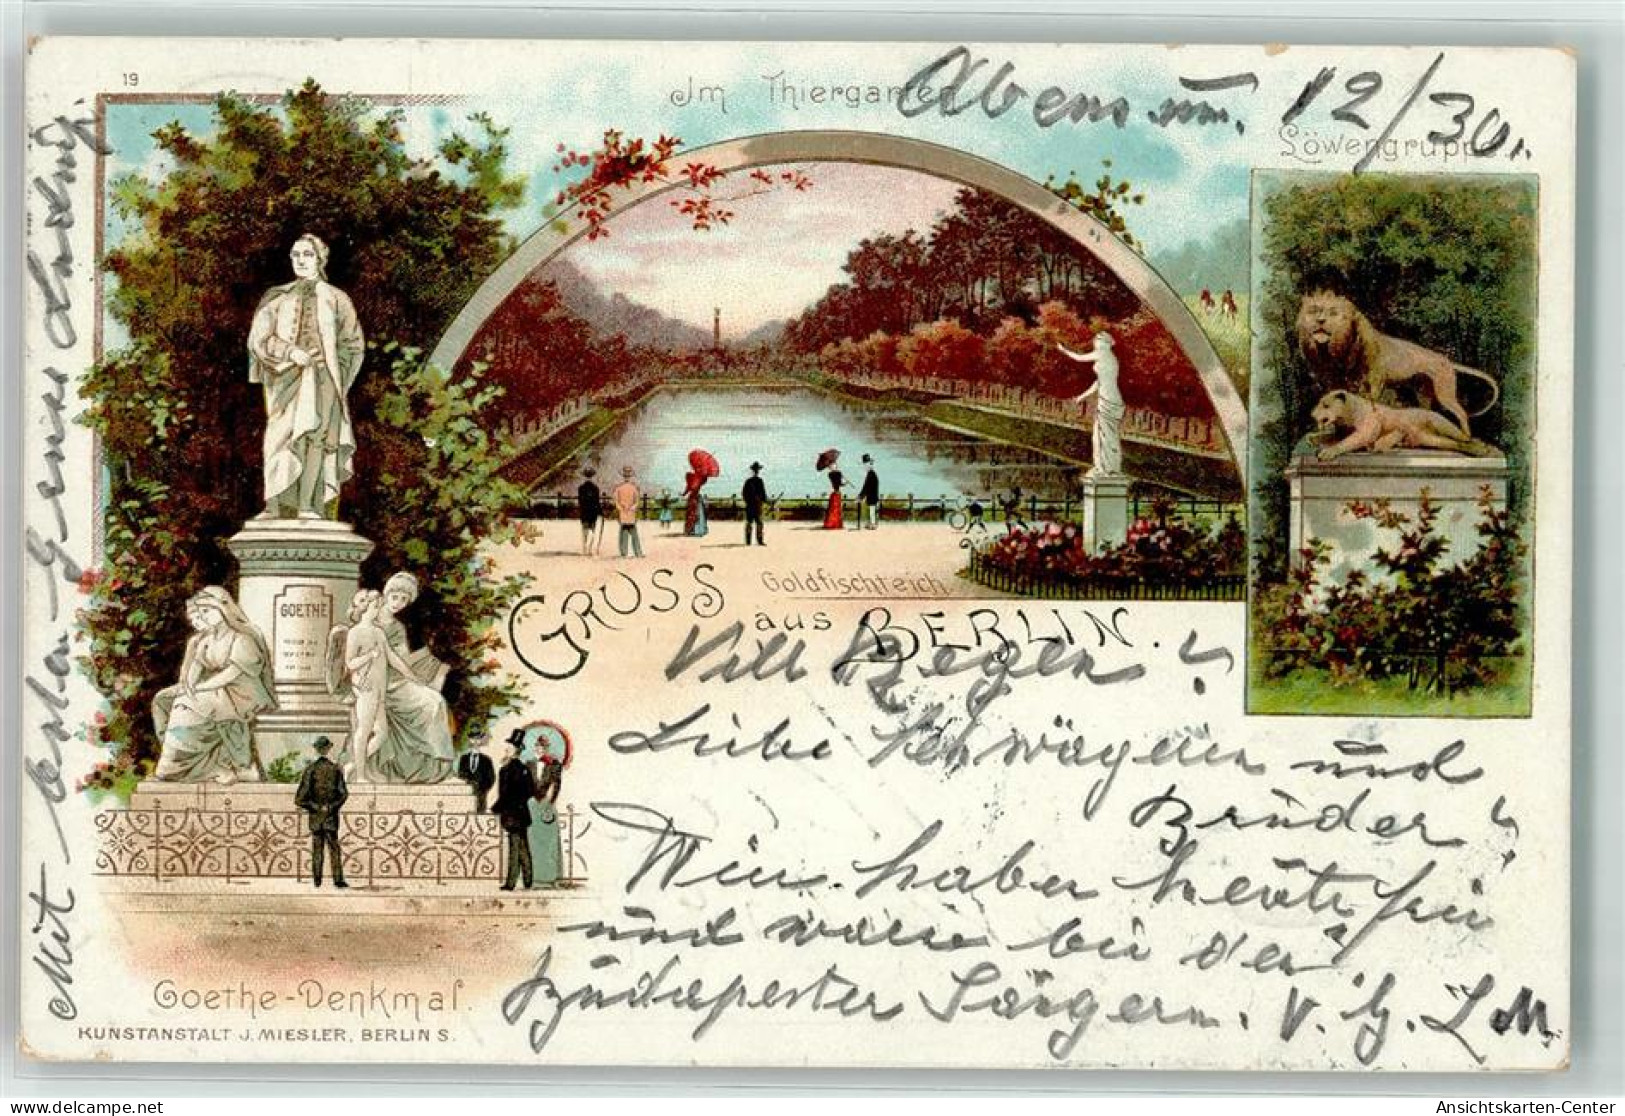 19
Im Thiergarten
Abens um. 12/30.
Löwengruppe
GOETHE
Goldfischteich
GRUSS aus BERLIN.
Vill Regen!
Liebe Schwägerin und
Brüder!
Wir haben heute frei
und waren bei den
Budapester Sängern. V. G. L M.
Mit besten Gruss Ludwig.
Goethe-Denkmal.
KUNSTANSTALT J. MIESLER, BERLIN S.
Ansichtskarten-Center